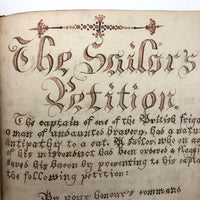 The Sailor's
Petition.
The captain of one of the British friga
a man of undaunted bravery, had a natu
antipathy to a cat. A sailor who on ac
of his misconduct had been ordered a flogg
saved his bacon by presenting to his capta
the following petition:
By your honour's command